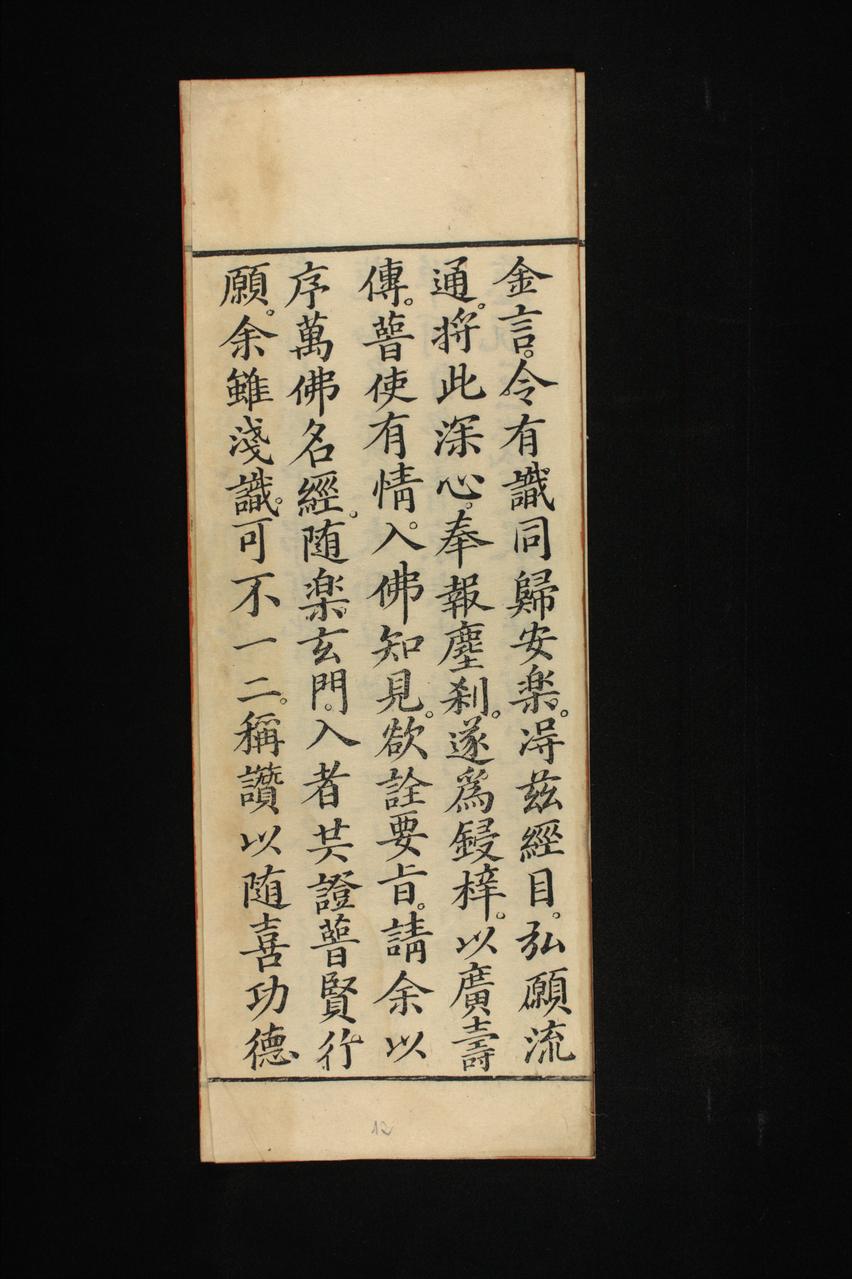 金言。令有識同歸安楽。淂兹經目。弘願流
通。将此深心。奉報塵刹。遂爲鋟梓。以廣壽
傳。普使有情。入佛知見。欲詮要旨。請余以
序萬佛名經。随楽玄門。入者共證普賢行
願。余雖淺識。可不一二。稱讚以随喜功德
12